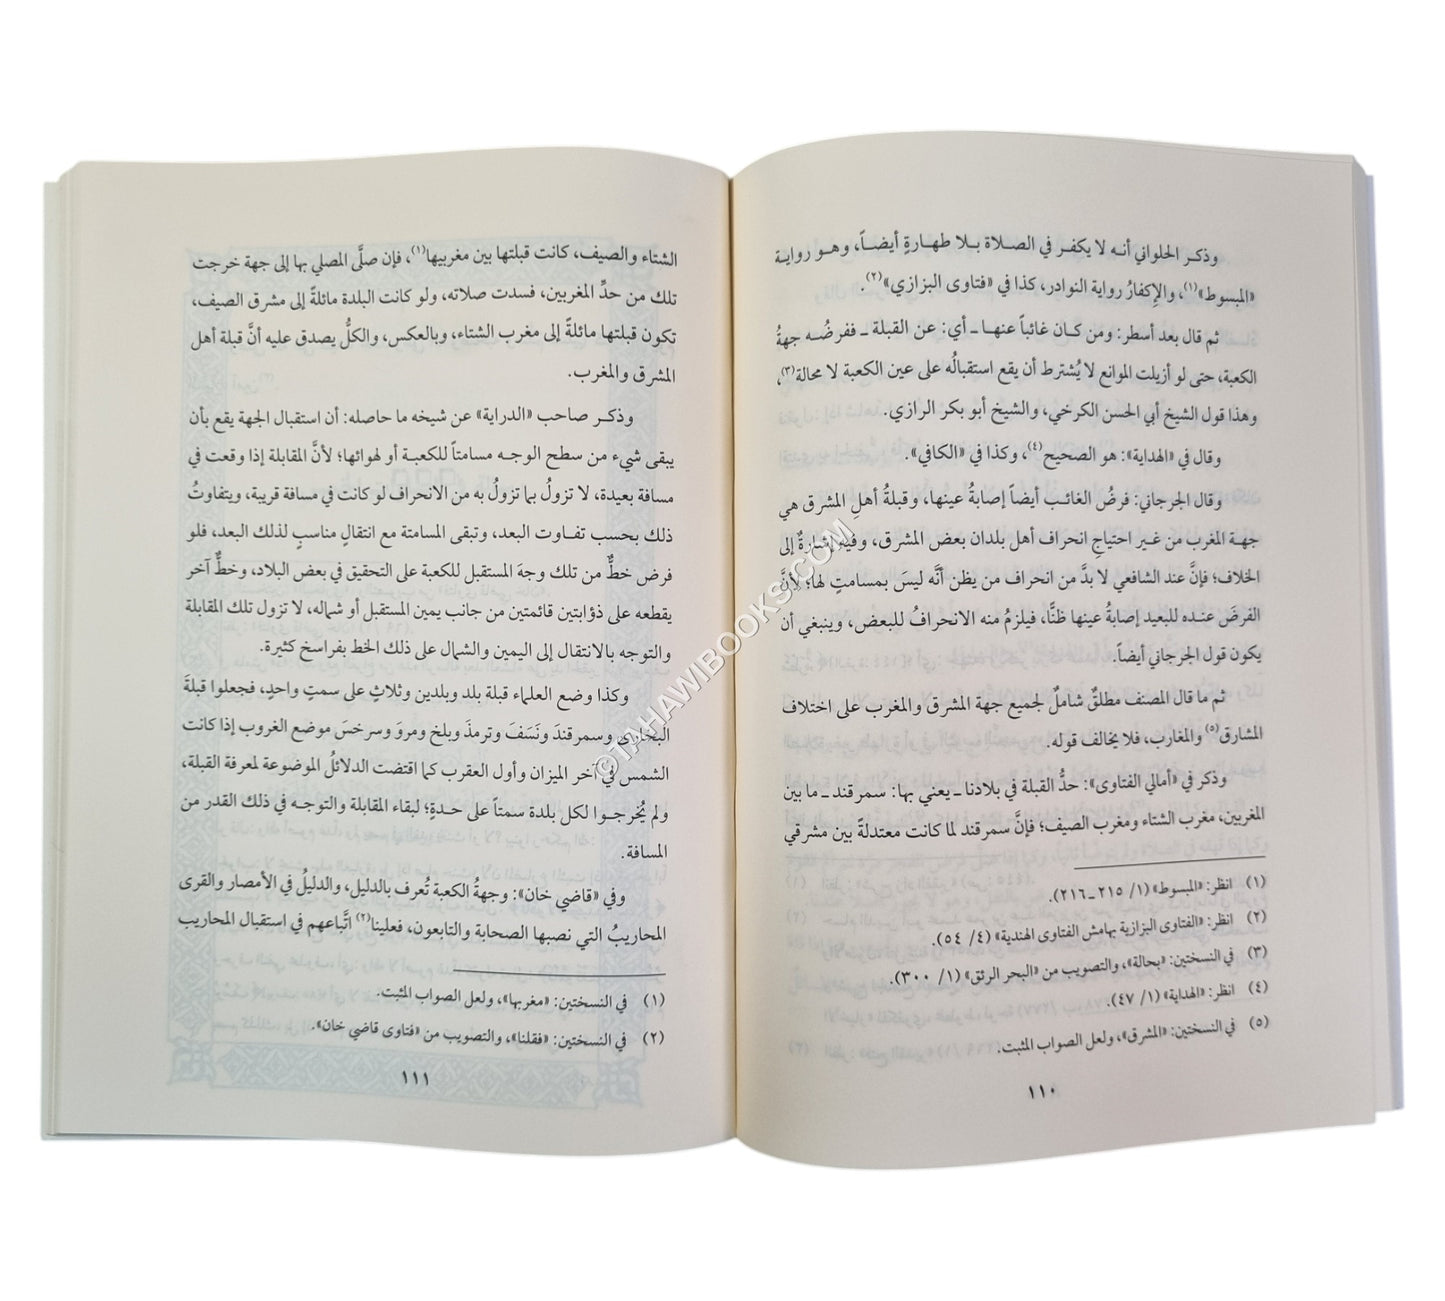 وذكـر الحلواني أنـه لا يكفـر في الصـلاة بـلا طهـارةٍ أيضـاً، وهـو روايـة
«المبسوط»(١)، والإكفارُ رواية النوادر، كذا في «فتاوى البزازي»(٢).
ثم قال بعد أسطر: ومن كـان غائباً عنهـا ـ أي: عن القبلة ـ ففرضُـه جهةُ
الكعبة، حتى لو أزيلت الموانع لا يُشترط أن يقع استقبالُه على عين الكعبة لا محالة(٣)،
وهذا قول الشيخ أبي الحسن الكرخي، والشيخ أبو بكر الرازي.
وقال في «الهداية»: هو الصحيح(٤)، وكذا في «الكافي».
وقال الجرجاني: فرضُ الغائب أيضاً إصابةُ عينها، وقبلةُ أهلِ المشرق هي
جهـة المغرب من غـير احتياجِ انحراف أهل بلدان بعض المشرق، وفيه إشارةٌ إلى
الخلاف؛ فإنَّ عند الشافعي لا بدَّ من انحراف من يظن أنَّه ليسَ بمسامتٍ لها؛ لأنَّ
الفرضَ عنـده للبعيد إصابةُ عينها ظنًّا، فيلزمُ منه الانحرافُ للبعض، وينبغي أن
يكون قول الجرجاني أيضاً.
ثم ما قال المصنف مطلقٌ شاملٌ لجميع جهة المشرق والمغرب على اختلاف
المشارق(٥) والمغارب، فلا يخالف قوله.
وذكر في «أمالي الفتاوى»: حدُّ القبلة في بلادنا ـ يعني بها: سمرقند ـ ما بين
المغربين، مغرب الشتاء ومغرب الصيف؛ فإنَّ سمرقند لما كانت معتدلةً بين مشرقي
(١) انظر: «المبسوط» (١/ ٢١٥ ـ ٢١٦).
(٢) انظر: «الفتاوى البزازية بهامش الفتاوى الهندية» (٤/ ٥٤).
(٣) في النسختين: «بحالة»، والتصويب من «البحر الرئق» (١/ ٣٠٠).
(٤) انظر: «الهداية» (١/ ٤٧).
(٥) في النسختين: «المشرق»، ولعل الصواب المثبت.
١١٠
الشتاء والصيف، كانت قبلتها بين مغربيها(١)، فإن صلَّى المصلي بها إلى جهة خرجت
تلك من حدِّ المغربين، فسدت صلاته، ولو كانت البلدة مائلةً إلى مشرق الصيف،
تكون قبلتها مائلةً إلى مغرب الشتاء، وبالعكس، والكلُّ يصدق عليه أنَّ قبلة أهل
المشرق والمغرب.
وذكـر صاحب «الدراية» عن شيخه ما حاصله: أن استقبال الجهة يقع بأن
يبقى شيء من سطح الوجـه مسامتاً للكعبـة أو لهوائها؛ لأنَّ المقابلة إذا وقعت في
مسافة بعيدة، لا تزولُ بما تزولُ به من الانحراف لو كانت في مسافة قريبة، ويتفاوتُ
ذلك بحسب تفـاوت البعد، وتبقى المسامتة مع انتقالٍ مناسبٍ لذلك البعد، فلو
فرض خطٌّ من تلك وجهَ المستقبل للكعبة على التحقيق في بعض البلاد، وخطٌّ آخر
يقطعه على ذؤابتين قائمتين من جانب يمين المستقبل أو شماله، لا تزول تلك المقابلة
والتوجه بالانتقال إلى اليمين والشمال على ذلك الخط بفراسخ كثيرة.
وكذا وضع العلماء قبلة بلد وبلدين وثلاثٍ على سمتٍ واحدٍ، فجعلوا قبلةَ
البخارى وسمرقندَ ونَسَفَ وترمذَ وبلخ ومروَ وسرخسَ موضع الغروب إذا كانت
الشمس في آخر الميزان وأول العقرب كما اقتضت الدلائلُ الموضوعة لمعرفة القبلة،
ولم يُخرجـوا لكل بلدة سمتاً على حـدةٍ؛ لبقاء المقابلة والتوجـه في ذلك القدر من
المسافة.
وفي «قاضي خان»: وجهةُ الكعبة تُعرف بالدليل، والدليلُ في الأمصار والقرى
المحاريبُ التي نصبها الصحابة والتابعون، فعلينا(٢) اتَّباعهم في استقبال المحاريب
(١) في النسختين: «مغربها»، ولعل الصواب المثبت.
(٢) في النسختين: «فقلنا»، والتصويب من «فتاوى قاضي خان».
١١١
©TAHAWIBOOKS.COM